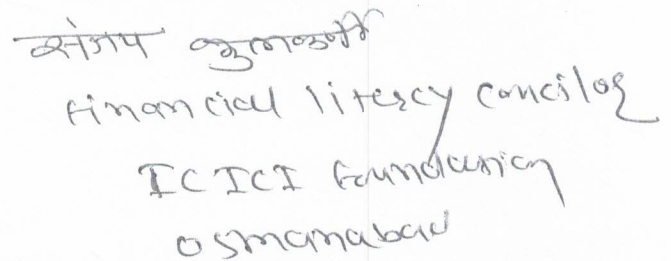 संजय कुलकर्णी
Financial literscy concilor
ICICI Foundation
osmanabad